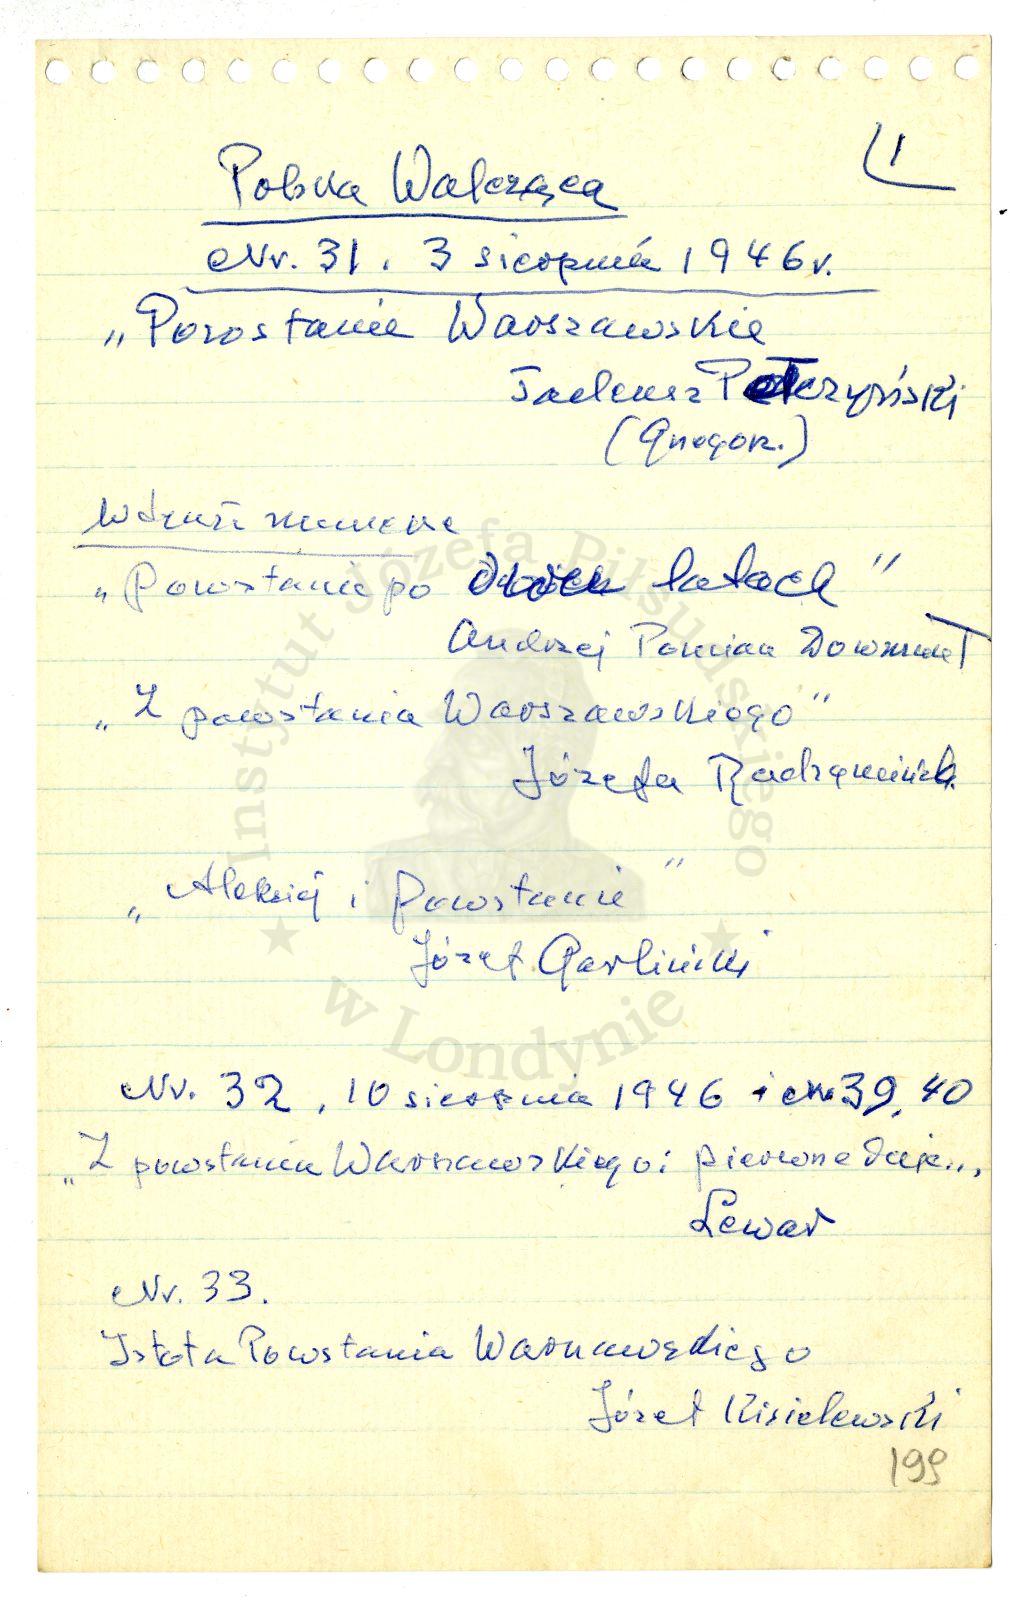 1
Polska Walcząca
Nr. 31. 3 sierpnia 1946 r.
„Powstanie Warszawskie
Tadeusz Pełczyński
(Grzegorz.)
W tymże numerze
„Powstanie po dwóch latach"
Andrzej Pomian Dowmunt
„Z powstania Warszawskiego"
Józefa Radzymińsk.
„Aleksiej i powstanie"
Józef Garliński
Nr. 32, 10 sierpnia 1946 i nr. 39, 40
„Z powstania Warszawskiego: pierwsze dnie..,
Lewar
Nr. 33.
Istota Powstania Warszawskiego
Józef Kisielewski
199
Instytut Józefa Piłsudskiego
w Londynie